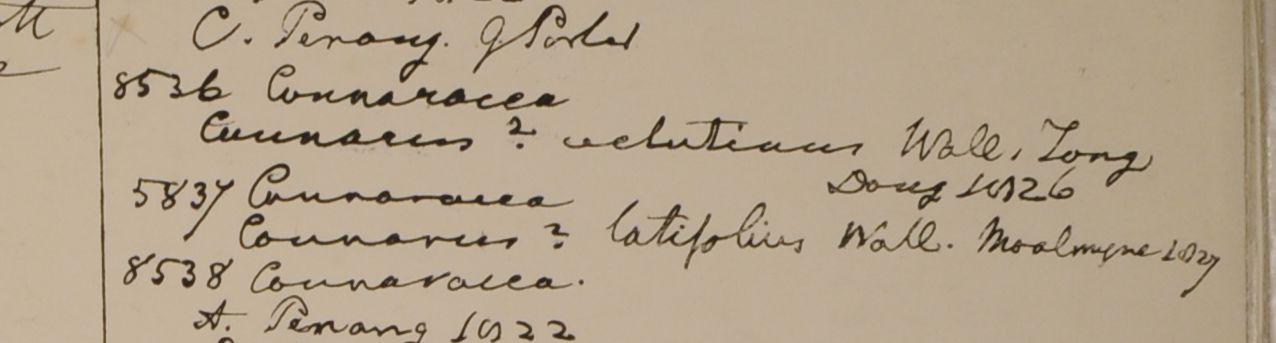 C. Penang. G Porter
8536 Connaracea
Connarus ? velutinus Wall. Tong
Dong 1826
5837 Connaracea
Connarus ? latifolius Wall. Moalmyne 1827
8538 Connaracea.
A. Penang 1822